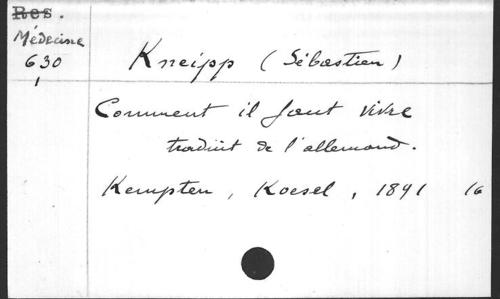 Res.
Médecine
630
1
Kneipp (Sébastien)
Comment il faut vivre
traduit de l'allemand.
Kempten, Koesel, 1891 16